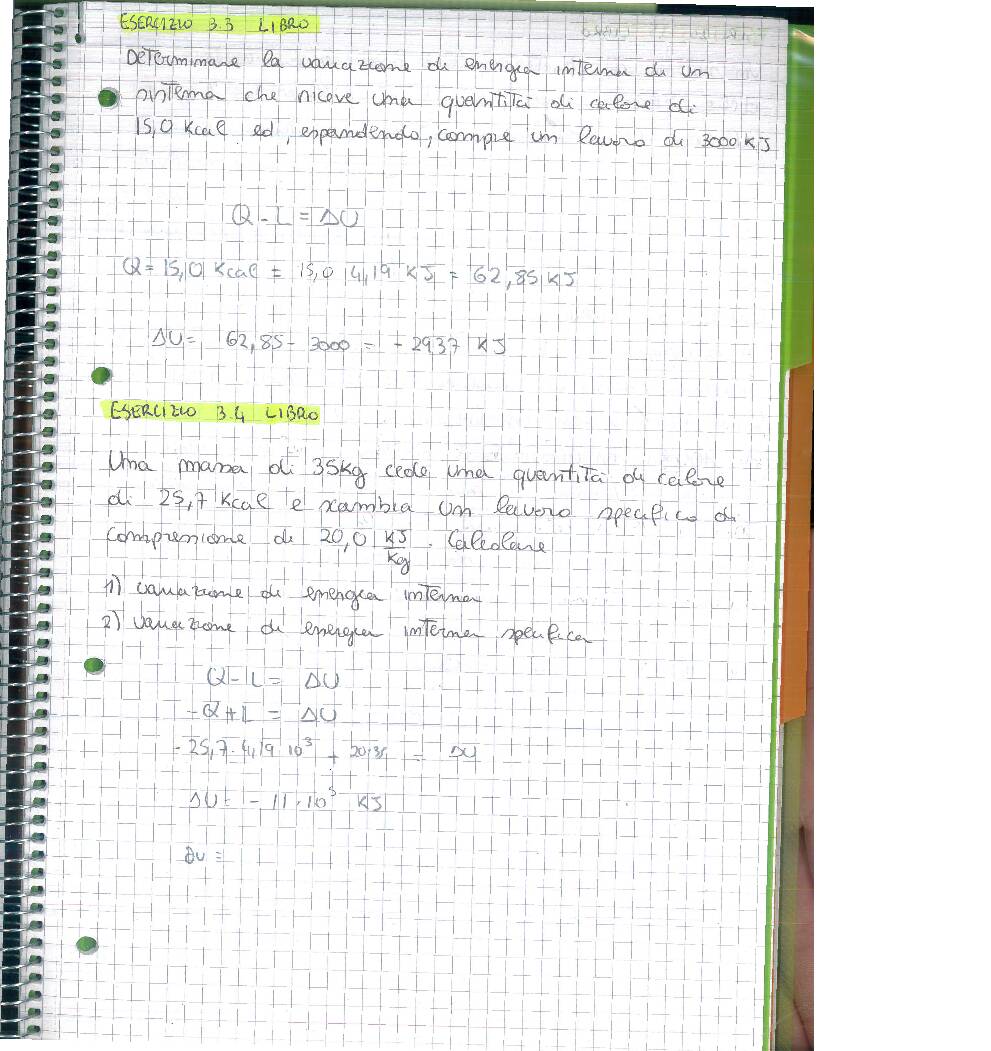 ESERCIZIO 3.3 LIBRO
Determinare la variazione di energia interna di un
sistema che riceve una quantità di calore di
15,0 Kcal ed, espandendo, compie un lavoro di 3000 KJ
Q - L = ΔU
Q = 15,0 Kcal = 15,0 4,19 KJ = 62,85 KJ
ΔU = 62,85 - 3000 = - 2937 KJ
ESERCIZIO 3.4 LIBRO
Una massa di 35Kg cede una quantità di calore
di 25,7 Kcal e scambia un lavoro specifico di
compressione di 20,0 KJ/Kg. Calcolare
1) variazione di energia interna
2) variazione di energia interna specifica
Q - L = ΔU
- Q + L = ΔU
- 25,7 · 4,19 · 10³ + 20·35 = ΔU
ΔU = - 11 · 10⁵ KJ
Δu =